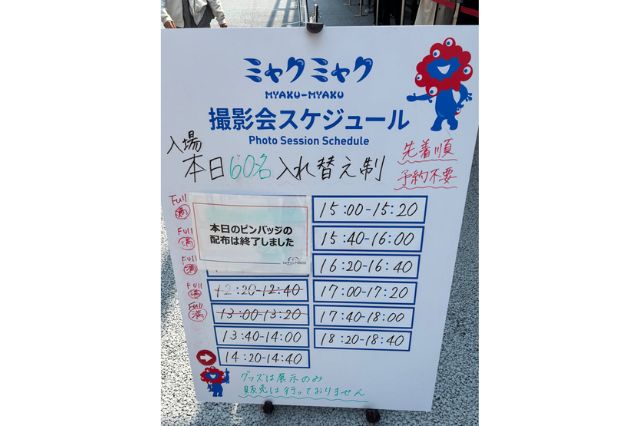 ミャクミャク
MYAKU-MYAKU
撮影会スケジュール
Photo Session Schedule
入場
本日60名入れ替え制
先着順
予約不要
Full
満
Full
満
Full
満
Full
満
Full
満
本日のピンバッジの
配布は終了しました
12:20-12:40
13:00-13:20
13:40-14:00
14:20-14:40
15:00-15:20
15:40-16:00
16:20-16:40
17:00-17:20
17:40-18:00
18:20-18:40
グッズは展示のみ
販売は行っておりません